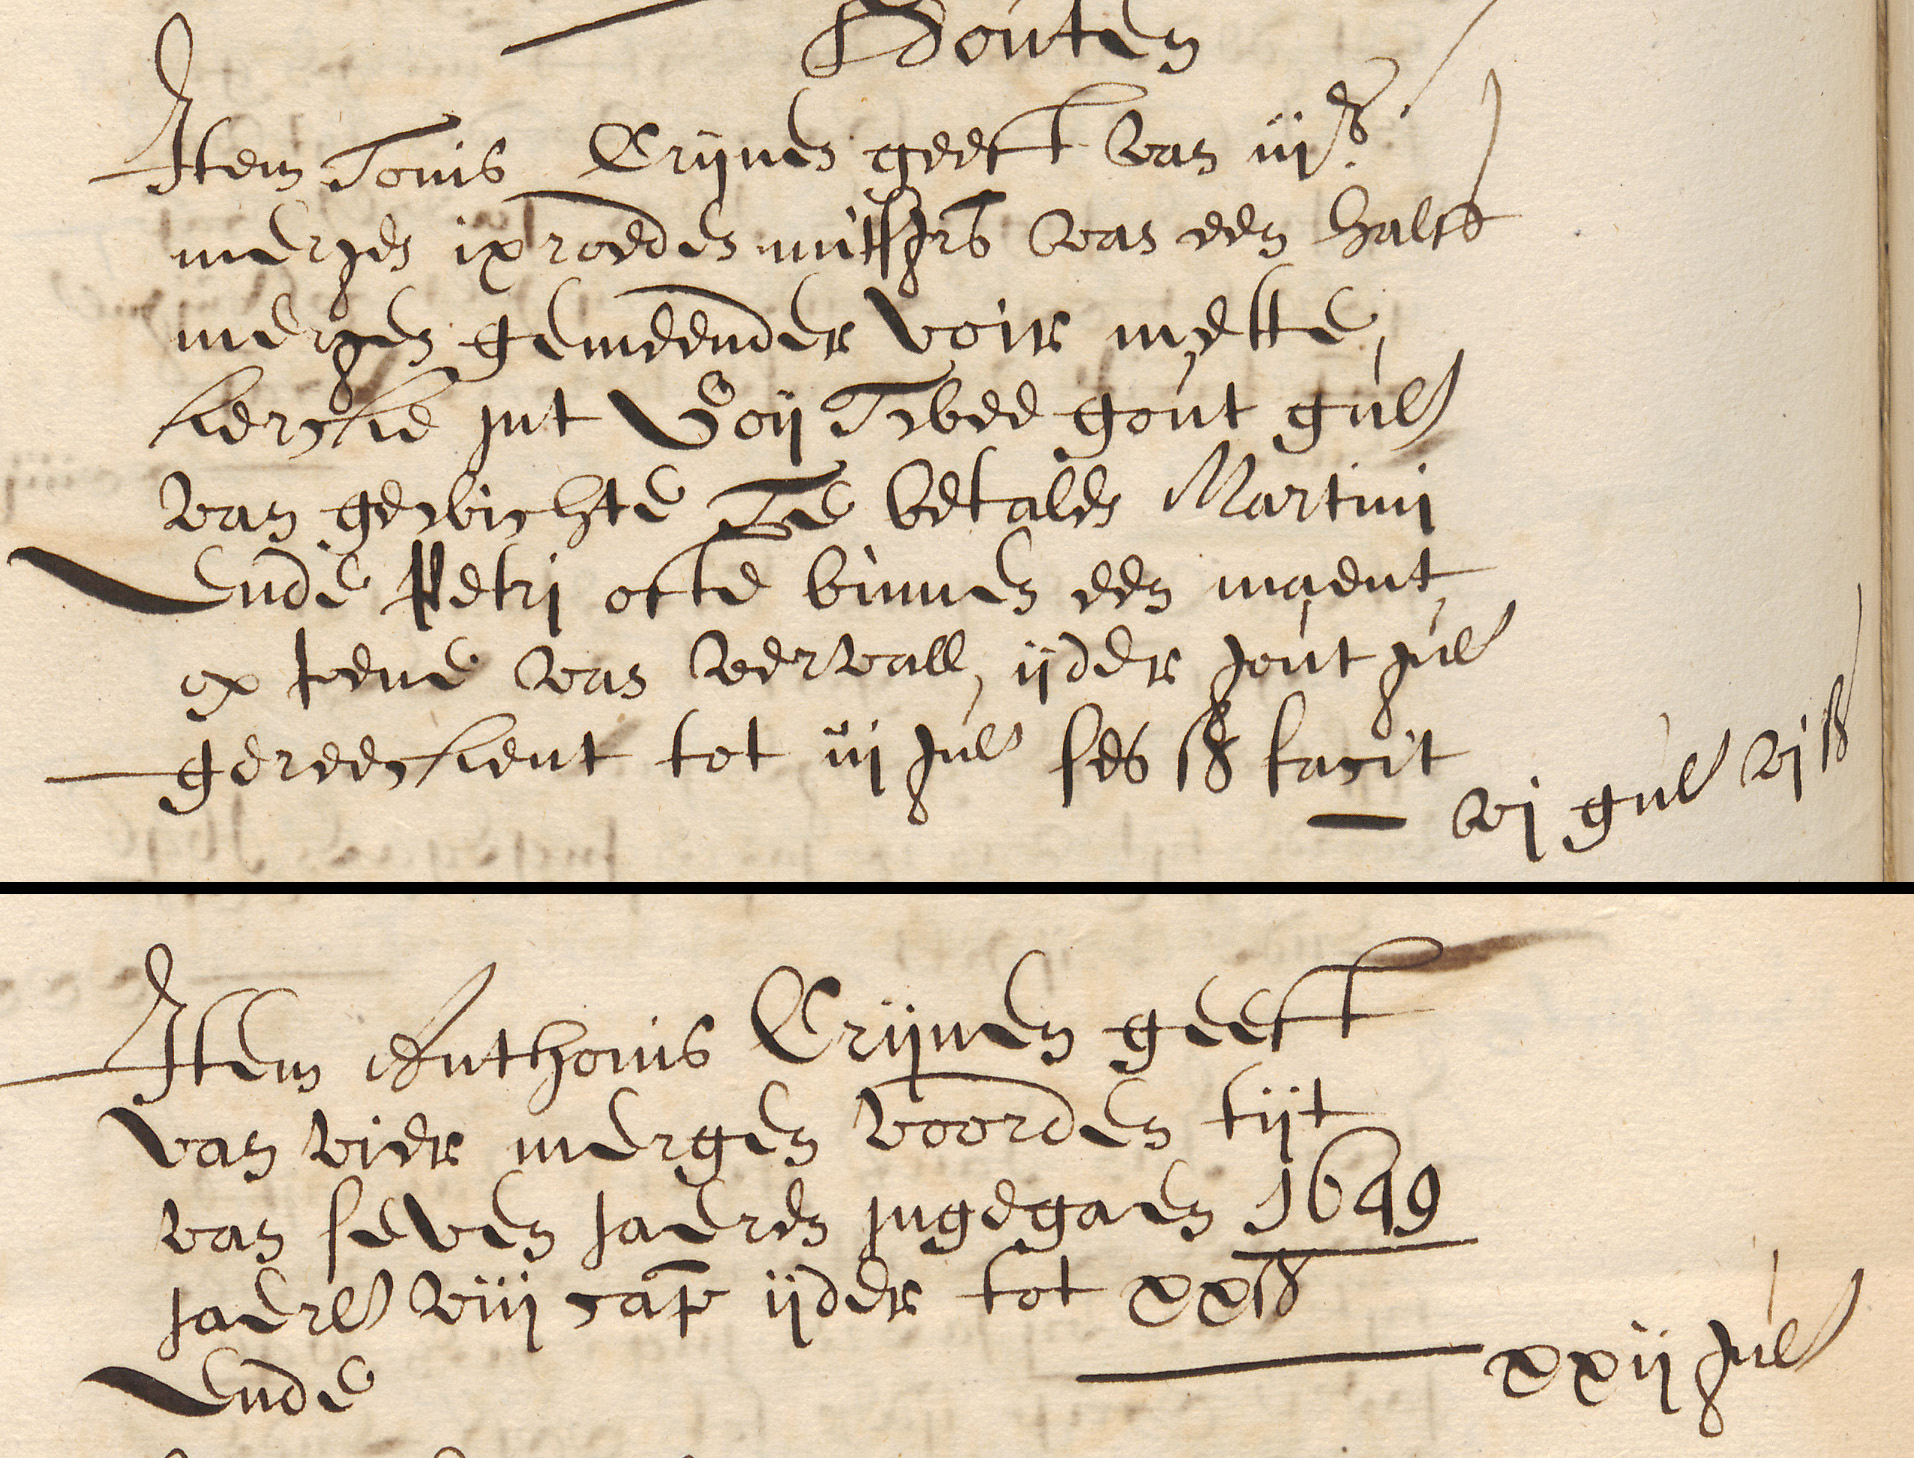 Houten
Item Tonis Crijnen geeft van iij
mergen ix roeden mitsgrs van een halff
mergen gemeender voir mette
kercke int Goij Twee gout gul
van gewichte Te betalen Martini
Ende Petri ofte binnen een maent
ex tene van verval, ijder gout gul
gereeckent tot iij gul ses st facit
vj gul xij st
Item Anthonis Crijnen geeft
van vier mergen voorden tijt
van seven jaeren ingegaen 1649
jaerl viij cap ijder tot xx st
Ende
xxij gul